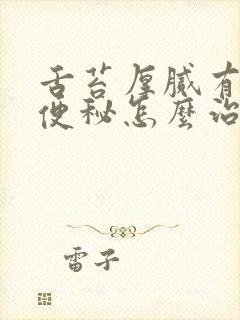 舌苔厚腻有
便秘怎麼治
雷子